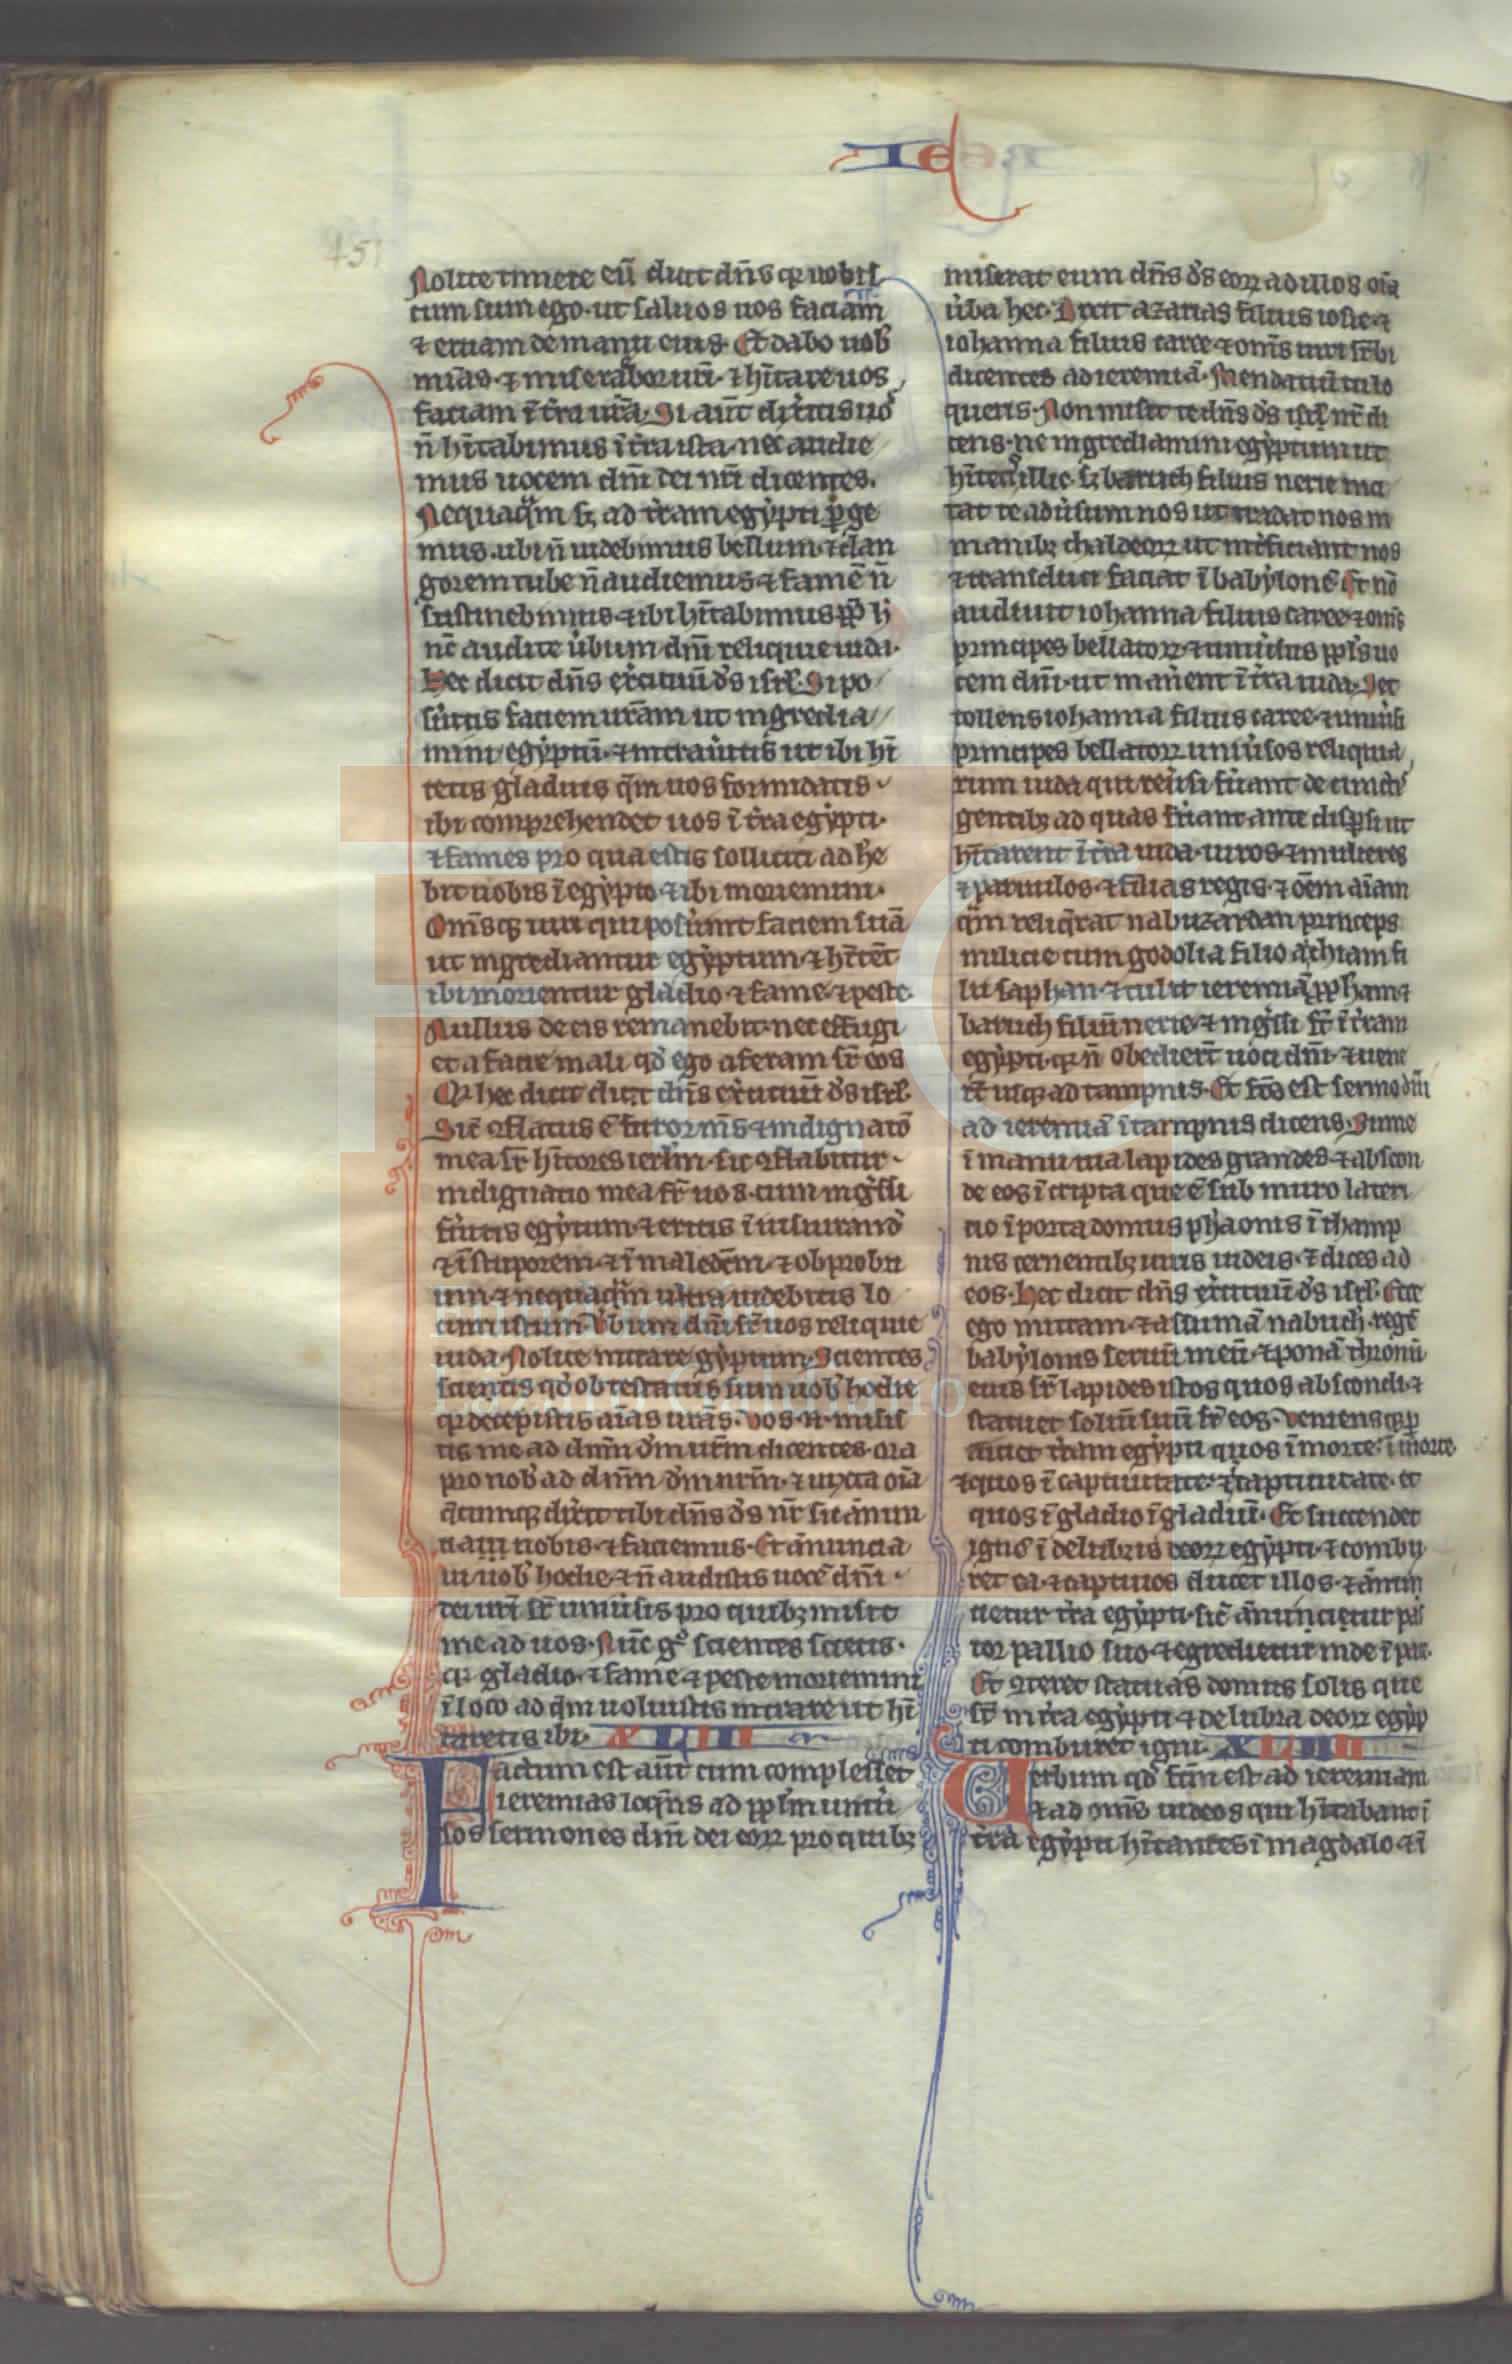 IE
451
Nolite timere eū dicit dn̄s qr uobis
cum sum ego · ut saluos uos faciam
⁊ eruam de manu eius · Et dabo uob̾
mīas · ⁊ miserabor uri · ⁊ hītare uos
faciam ī t̄ra ur̄a · Si aūt dixitis uō
n̄ hītabimus ī t̄ra ista · nec audie
mus uocem dn̄i dei nr̄i dicentes ·
Nequaq̄m sꝫ ad t̄ram egẏpti ꝑge
mus · ubi n̄ uidebimus bellum · ⁊ clan
gorem tube n̄ audiemus ⁊ famē n̄
sustinebimus · ⁊ ibi hītabimus ꝓp̄ h̾
nc̄ audite u̾bum dn̄i reliquie iuda ·
Hec dicit dn̄s exercituū d̄s isrl̄ · Si po
su̾itis faciem ur̄am ut ingredia
mini egẏptū · ⁊ intrau̾itis ut ibi hī
tetis gladius q̄m uos formidatis
ibi comprehendet uos ī t̄ra egẏpti ·
⁊ fames pro qua estis solliciti adhe
bit uobis ī egẏpto · ⁊ ibi moriemini ·
Om̄sqꝫ uiri qui posu̾unt faciem suā
ut ingrediantur egẏptum · ⁊ hītēt
ibi morientur gladio · ⁊ fame · ⁊ peste ·
Nullus de eis remanebit · nec effugi
et a facie mali qd̾ ego aferam sr̄ eos
Qr hec dicit dicit dn̄s exercituū d̄s isrl̄ ·
Sic̄ ꝯflatus ē furor m̄s ⁊ indignatō
mea sr̄ hītores ierlm̄ · sic ꝯflabitur
indignatio mea sr̄ uos · cum ingr̄ssi
fu̾itis egẏtum · ⁊ eritis ī iusiurand̾
⁊ ī stuporem · ⁊ ī maledc̄m · ⁊ obprobri
um · ⁊ nequaq̄m ultra uidebitis lo
cum istum · U̾bum dn̄i sr̄ uos reliquie
iuda · Nolite intrare gẏptum · Scientes
scientis qd̾ obtestatus sum uob̾ hodie
qr decepistis aīas ur̄as · Uos · n · misis
tis me ad dn̄m d̄m ur̄m dicentes · ora
pro nob̾ ad dn̄m d̄m nr̄m · ⁊ iuxta oīa
q̄cumqꝫ dixit tibi dn̄s d̄s nr̄ sic ānun
tiam nobis · ⁊ faciemus · Et ānuncia
ui uob̾ hodie · ⁊ n̄ audistis uocē dn̄i ·
dei ur̄i sr̄ uniu̾sis pro quibꝫ misit
me ad uos · Nūc gͦ scientes scietis ·
qr gladio · ⁊ fame ⁊ peste moriemini
ī loco ad q̄m uoluistis intrare ut hī
taretis ibi · XLIII
Factum est aūt cum complesset
ieremias loq̄ns ad ꝓplm̄ uniu̾
sos sermones dn̄i dei eorꝝ pro quibꝫ
miserat eum dn̄s d̄s eorꝝ ad illos oīa
u̾ba hec · Dixit azarias filius iosie · ⁊
iohanna filius caree · ⁊ om̄s uiri sr̄bi
dicentes ad ieremiā · Mendatiū tu lo
queris · Non misit te dn̄s d̄s isrl̄ nr̄ di
cens · ne ingrediamini egẏptum ut
hītetis illic · sꝫ baruch filius nerie inci
tat te adu̾sum nos ut tradat nos in
manibꝫ chaldeorꝝ ut int̾ficiant nos
⁊ transduci faciat ī babẏlonē · Et nō
audiuit iohanna filius caree · ⁊ om̄s
principes bellatorꝝ · ⁊ uniu̾sus ꝓpl̄s uo
cem dn̄i · ut man̾ent ī t̄ra iuda · Set
tollens iohanna filius caree · ⁊ uniu̾si
principes bellatorꝝ uniu̾sos reliquia
rum iuda qui reu̾si fu̾ant de cunctis
gentibꝫ ad quas fu̾ant ante disp̱si ut
hītarent ī t̄ra iuda · uiros · ⁊ mulieres
⁊ paruulos · ⁊ filias regis · ⁊ ōem aīam
q̄m reliq̄rat nabuzardan princeps
milicie cum godolia filio achiam fi
lii saphan · ⁊ tulit ieremiā ꝓpham ⁊
baruch filiū nerie · ⁊ ingr̄ssi sr̄ ī t̄ram
egẏpti · qr n̄ obedierr̄t uoci dn̄i · ⁊ uene
rr̄t usqꝫ ad tampnis · Et fc̄s est sermo dn̄i
ad ieremiā ī tampnis dicens · Sume
ī manu tua lapides grandes · ⁊ abscon
de eos ī cripta que ē sub muro lateri
cio ī porta domus phaonis ī thamp
nis cernentibꝫ uiris iudeis · ⁊ dices ad
eos · Hec dicit dn̄s exercituū d̄s isrl̄ · Ecce
ego mittam · ⁊ assumā nabuch̾ · regē
babẏlonis seruū meū · ⁊ ponā thronū
eius sr̄ lapides istos quos abscondi · ⁊
statuet soliū suū sr̄ eos · Veniensqꝫ ꝑ
cutiet t̄ram egẏpti quos ī morte · ī morte ·
⁊ quos ī captiuitate · ī captiuitate · et
quos ī gladio ī gladiū · Et succendet
ignē ī delubris deorꝝ egẏpti · ⁊ combu
ret ea · ⁊ captiuos ducet illos · ⁊ āmi
cietur t̄ra egẏpti · sic̄ āmincietur pas
tor pallio suo · ⁊ egredietur inde ī pace ·
Et ꝯteret statuas domus solis que
sr̄ in t̄ra egẏpti · ⁊ delubra deorꝝ egẏp
ti comburet igni · XLIIII
Uerbum qd̾ fc̄m est ad ieremiam
⁊ ad om̄s iudeos qui hītabant ī
t̄ra egẏpti hītantes ī magdalo · ⁊ ī